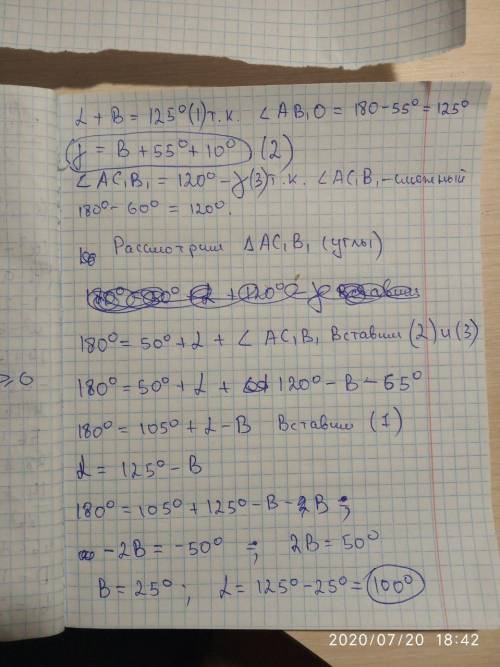 α + B = 125° (1) т.к. ∠AB₁O = 180-55° = 125°
γ = B + 55° + 10° (2)
∠AC₁B₁ = 120° - γ (3) т.к. ∠AC₁B₁ - смежный
180° - 60° = 120°.
Рассмотрим ΔAC₁B₁ (углы)
180° = 50° + α + ∠AC₁B₁ Вставим (2) и (3)
≥ 0
180° = 50° + α + 120° - B - 65°
180° = 105° + α - B Вставим (1)
α = 125° - B
180° = 105° + 125° - B - 2B ;
-2B = -50° ; 2B = 50°
B = 25° ; α = 125° - 25° = 100°
2020/07/20 18:42